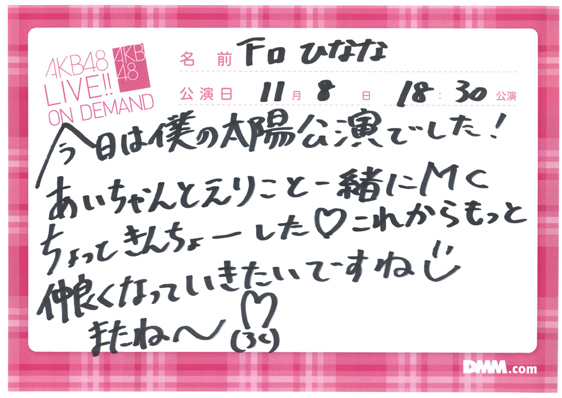 AKB48
LIVE!!
ON DEMAND
AKB
48
名前 下口ひなな
公演日 11月8日 18:30公演
今日は僕の太陽公演でした!
あいちゃんとえりこと一緒にMC
ちょってきんちょーした♡これからもっと
仲良くなっていきたいですね
またね〜♡
(3c)
DMM.com